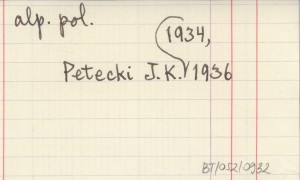 alp. pol.
1934,
Petecki J.K. 1936
BT/052/0932